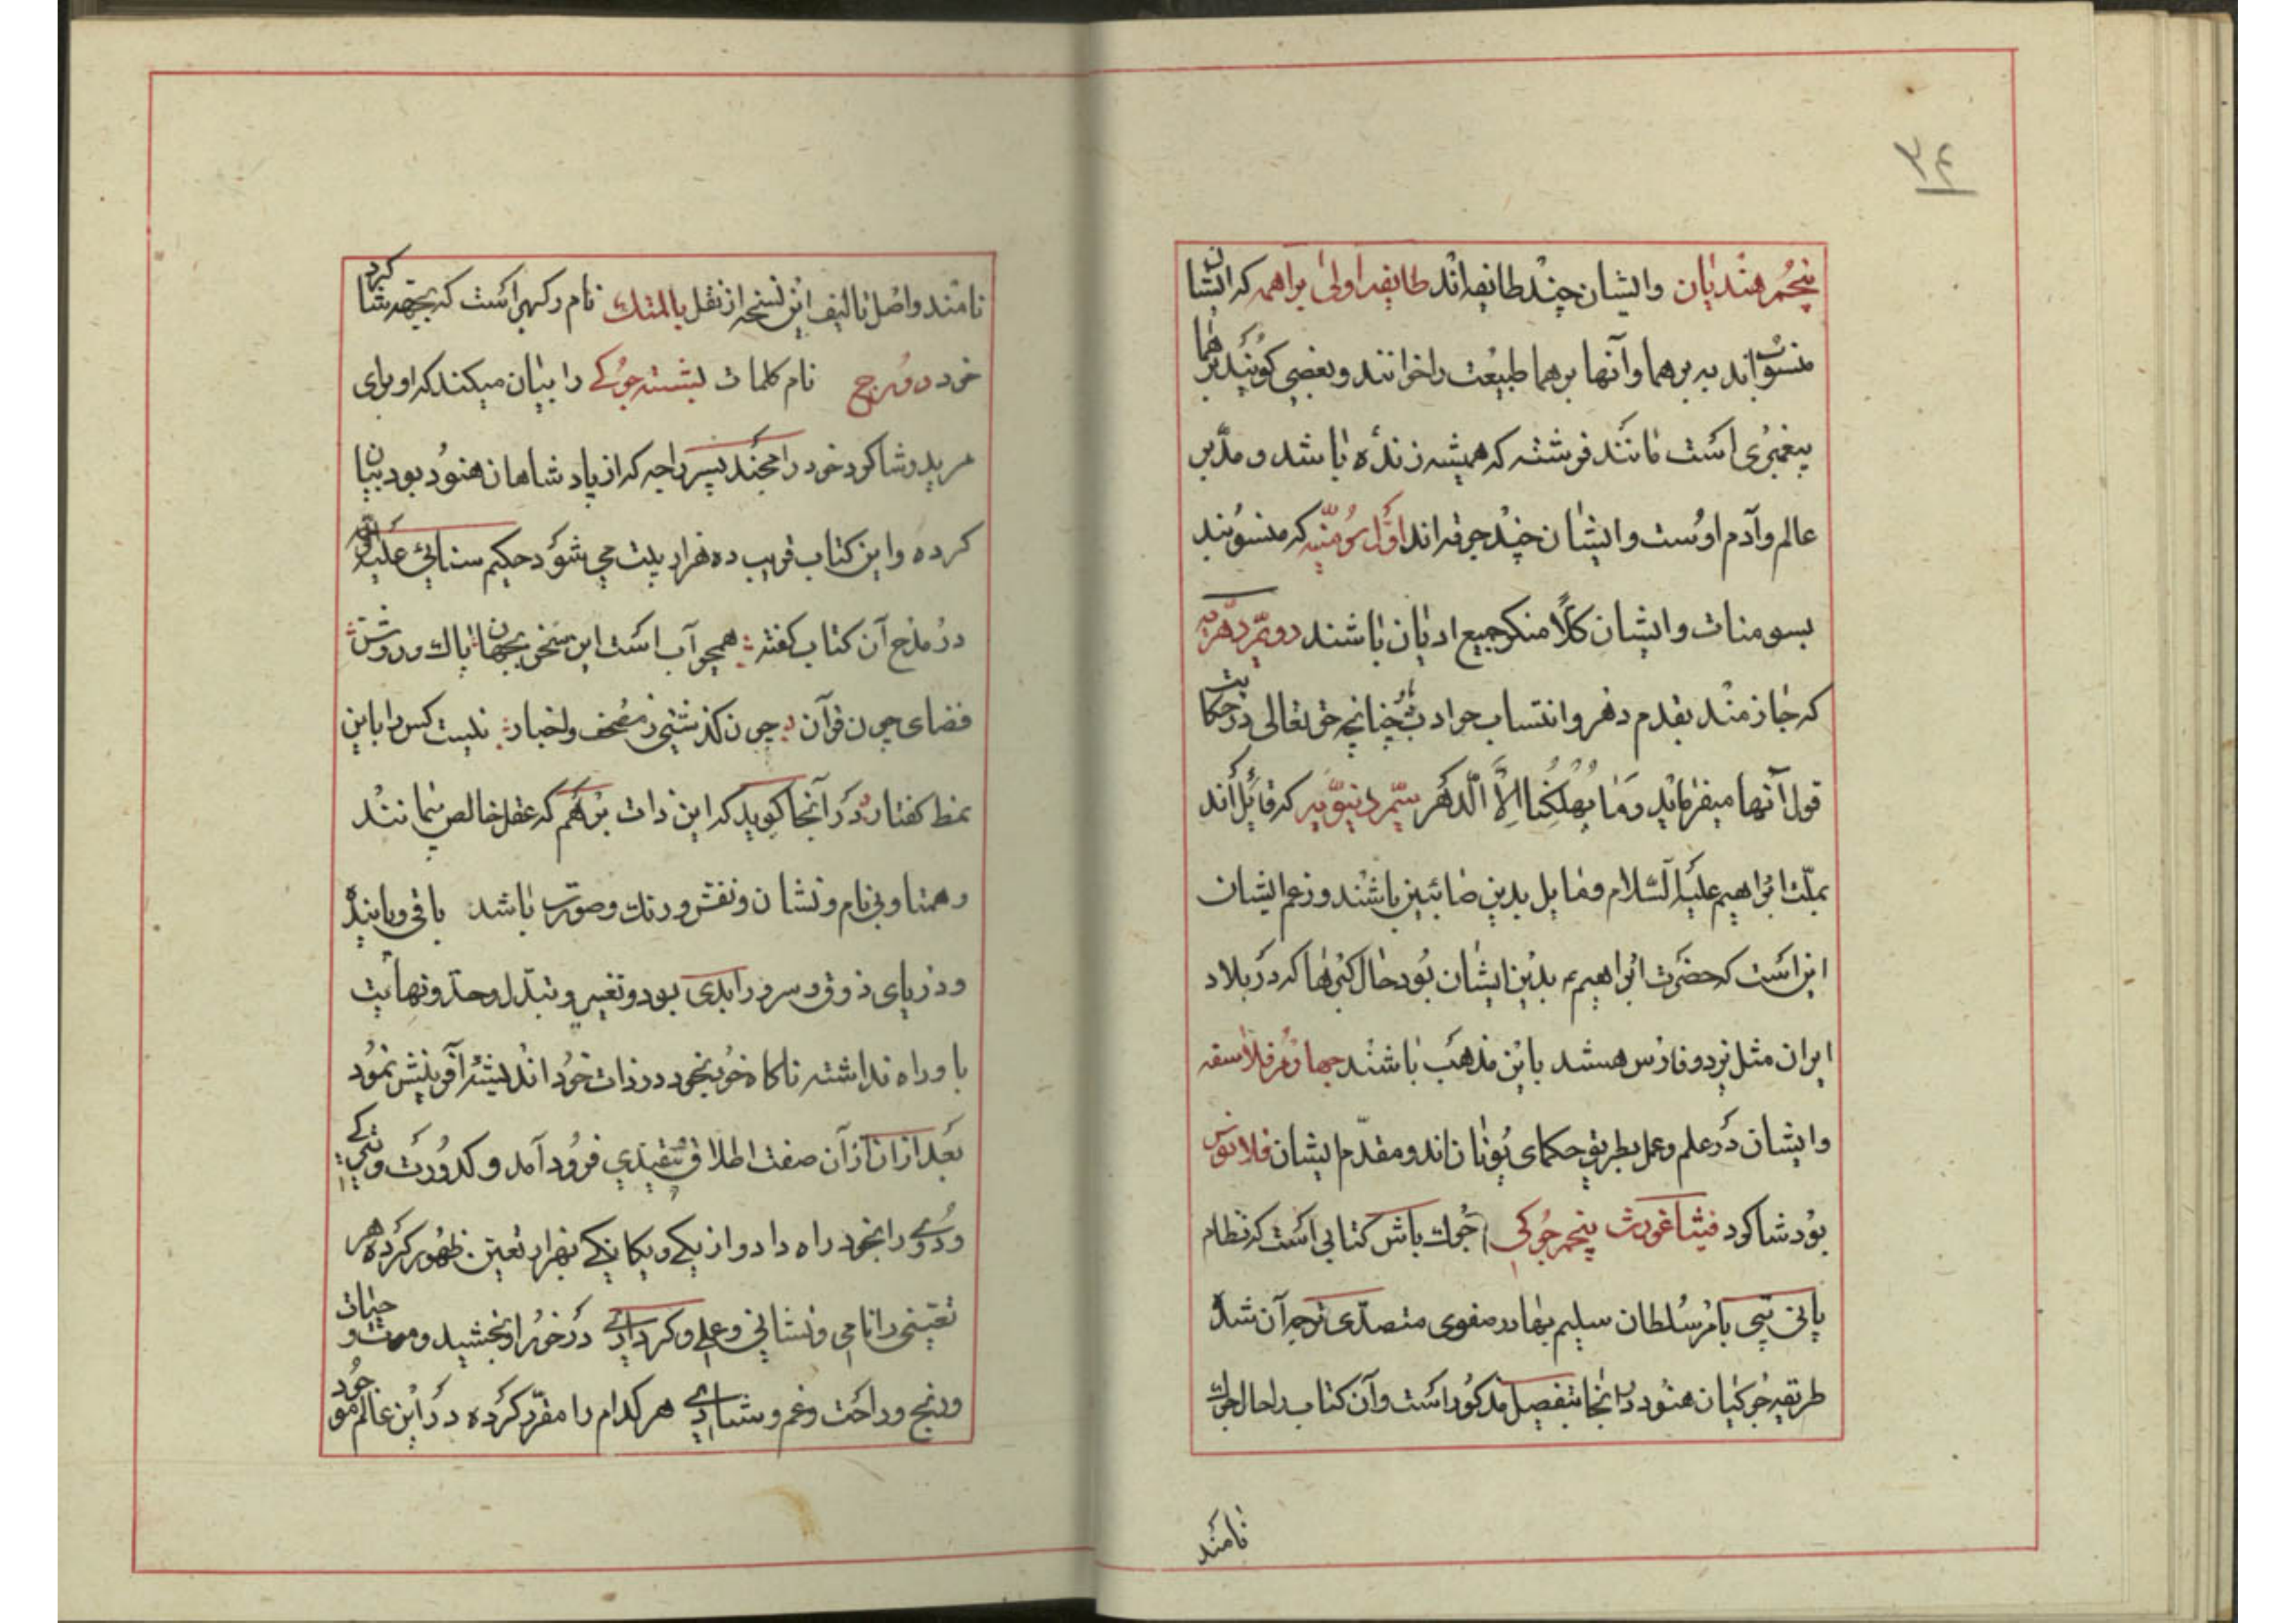 ۳۴
پنجم هندیان وایشان چند طایفه اند طایفه اولی براهمه که ایشان
منسوب اند به برهما وآنها برهما طبیعت را خوانند وبعضی کویند برهما
پیغمبری است مانند فرشته که همیشه زنده باشد و مدبر
عالم وآدم اوست وایشان چند جرقه اند اول سومنیه که منسوبند
بسومنات وایشان کلا منکر جمیع ادیان باشند دویم دهریه
که جازمند بقدم دهر وانتساب حوادث باو چنانچه حق تعالی در حکایت
قول آنها میفرماید وَمَا یُهْلِکُنَا اِلَّا الدَّهْر سیم دنیویه که قایل اند
بملت ابراهیم علیه السلام ومایل بدین صائبین باشند وزعم ایشان
این است که حضرت ابراهیم ع بدین ایشان بود حال کبرها که در بلاد
ایران مثل یزد وفارس هستند باین مذهب باشند چهارم فلاسفه
وایشان در علم وعمل بطریق حکمای یونان اند ومقدم ایشان فلانوس
بود شاکرد فیثاغورث پنجم جوکی جوک باش کتابی است که نظام
پانی پتی بامر سلطان سلیم بهادر صفوی متصدی ترجه آن شد
طریقه جوکیان هنود در انجا بتفصیل مذکور است وآن کتاب را حال جوک
نامند
نامند واصل تالیف این نسخه از نقل بالمتک نام رکهی است که بجهه شاکرد
خود دورج نام کلمات بشسته جوکی را بیان میکند که او برای
مرید وشاکرد خود رامچند پسر راجه که از پادشاهان هنود بود بیان
کرده واین کتاب قریب ده هزار بیت می شود حکیم سنائی علیه
در مدح آن کتاب کفته همچو آب است این سخن بجهان پاک وروشن
فضای چون قرآن چون کذشتی ز مصحف واخبار نیست کس را باین
نمط کفتار در آنجا کوید که این ذات برهم که عقل خالص بیمانند
وهمتا وبی نام ونشان ونقش ورنک وصورت باشد باقی وپاینده
ودریای ذوق وسرور ابدی بود وتغییر وتبدل وحد ونهایت
باو راه نداشته ناکاه خودبخود در ذات خود اندیشه آفرینش نمود
بعد ازان ازآن صفت اطلاق بتقیدی فرود آمد وکدورت
ودوئی را بخود راه داد واز یکی ویکانکی بهزار تعین ظهور کرده هر
تعینی را نامی ونشانی وعلی وکردارے در خور او بخشید وموت وحیات
ورنج وراحت وغم وشادے هر کدام را مقرر کرده در این عالم موجود